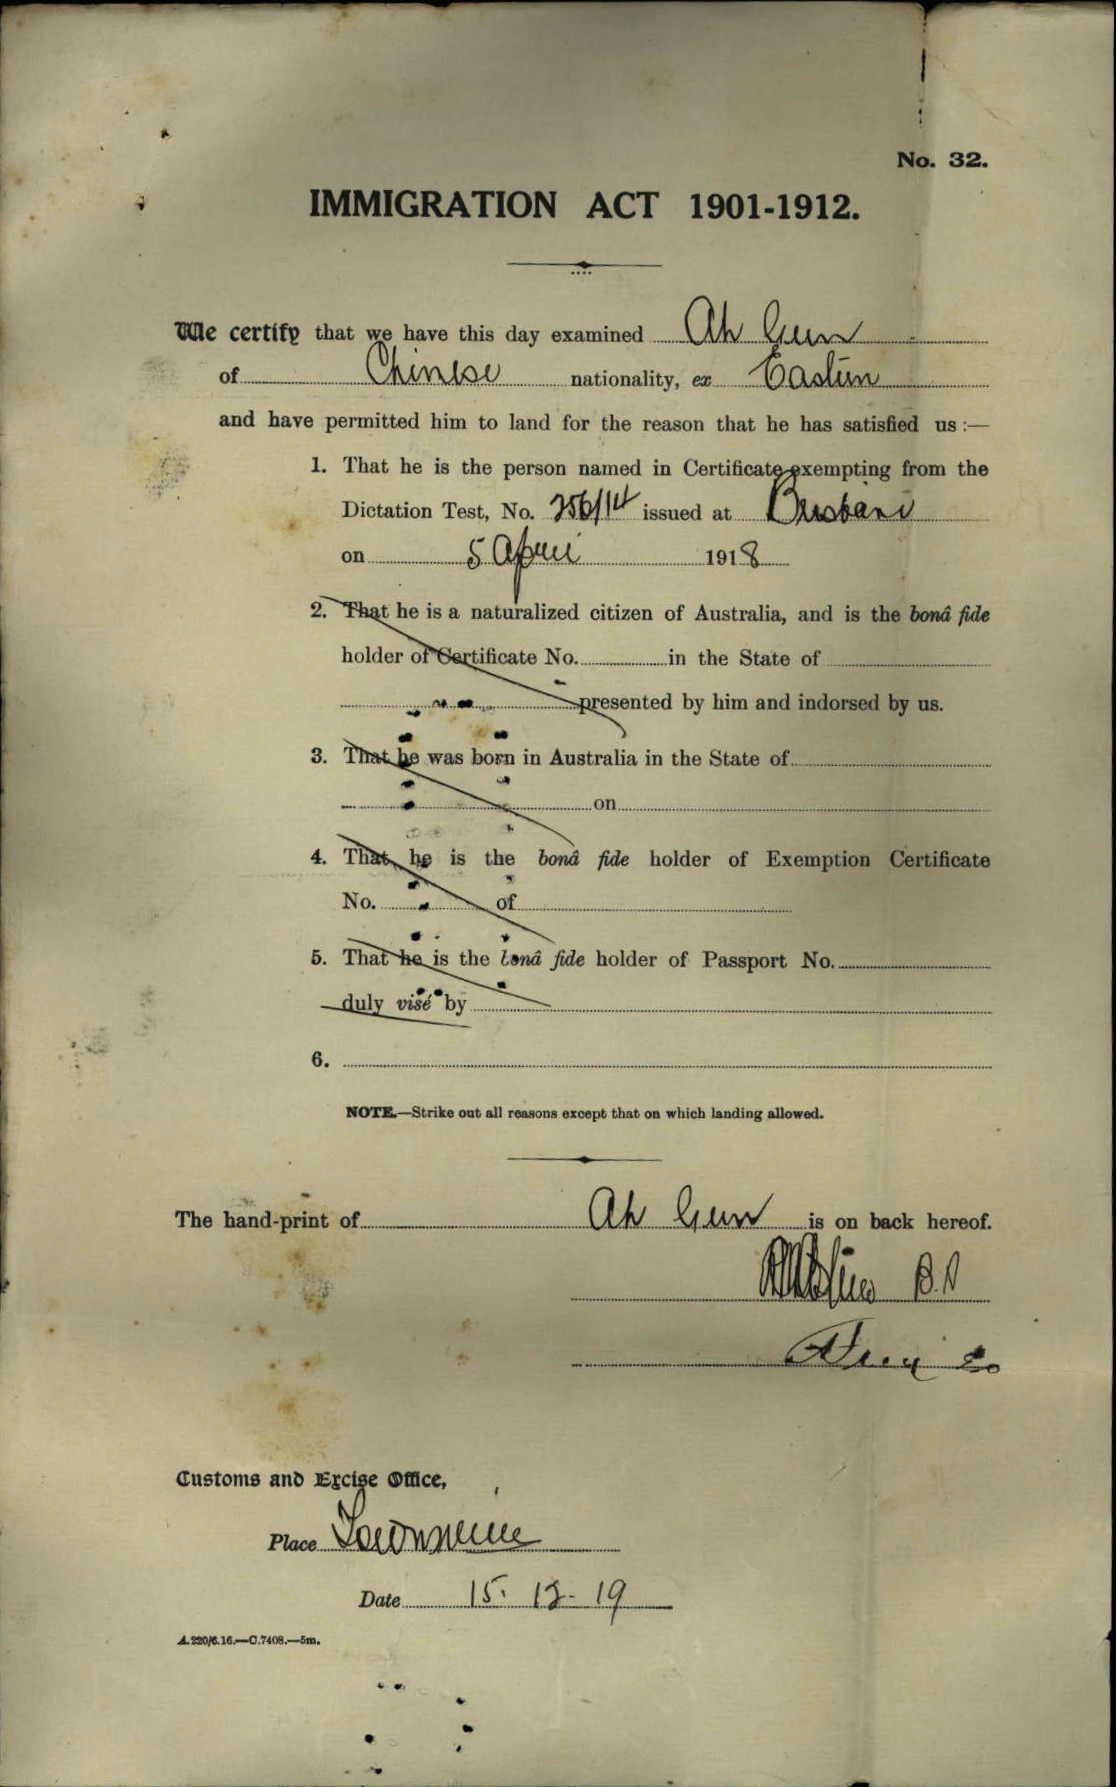 No. 32.
IMMIGRATION ACT 1901-1912.
We certify that we have this day examined Ah Gun
of Chinese nationality, ex Eastern
and have permitted him to land for the reason that he has satisfied us :—
1. That he is the person named in Certificate exempting from the
Dictation Test, No. 256/14 issued at Brisbane
on 5 April 1918
2. That he is a naturalized citizen of Australia, and is the bonâ fide
holder of Certificate No. in the State of
presented by him and indorsed by us.
3. That he was born in Australia in the State of
on
4. That he is the bonâ fide holder of Exemption Certificate
No. of
5. That he is the bonâ fide holder of Passport No.
duly visé by
6.
NOTE.—Strike out all reasons except that on which landing allowed.
The hand-print of Ah Gun is on back hereof.
Customs and Excise Office,
Place Townsville
Date 15. 12. 19
A.220/6.16.—C.7408.—5m.